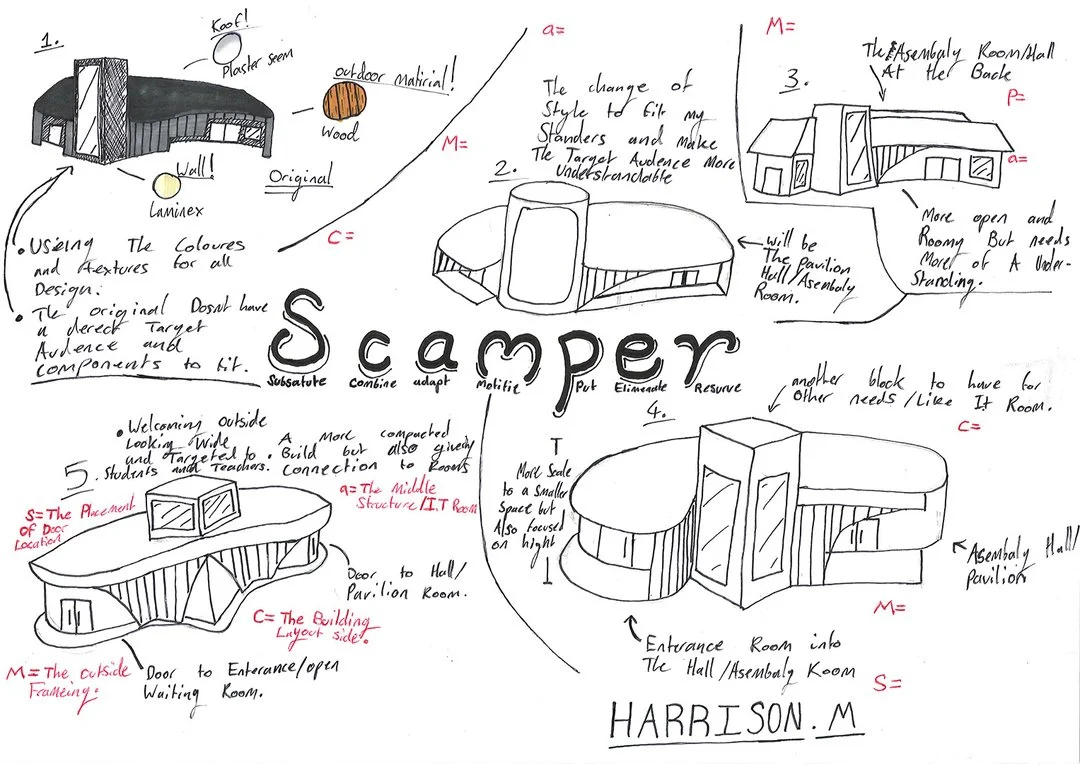 1.
Roof!
Plaster seem
outdoor matirial!
Wood
Wall!
Laminex
Original
• Useing The Colours
and textures for all
Design.
• The original Dosnt have
a derect Target
Audence and
components to fit.
a=
M=
C=
The change of
Style to fit my
Standers and make
The Target Audence More
Understandable
2.
will be
The pavilion
Hall/Asembaly
Room.
M=
The Asembaly Room/Hall
At the Back
3.
P=
a=
More open and
Roomy But needs
More of A Under-
Standing.
Scamper
Subsatute Combine adapt Motifie Put Elimenate Resurve
4.
another block to have for
other needs/Like It Room.
C=
More Scale
to a Smaller
Space but
Also focused
on hight
Asembaly Hall/
Pavilion
M=
Enterance Room into
The Hall/Asembaly Room
S=
5.
• Welcoming outside
Looking Wide
and Targeted to
Students and Teachers.
• A More compacted
Build but also giveing
Connection to Rooms
S= The Placement
of Door
Location
a= The Middle
Structure/I.T Room
Door to Hall/
Pavilion Room.
C= The Building
Layout side.
M= The outside
Frameing.
Door to Enterance/open
Waiting Room.
HARRISON. M